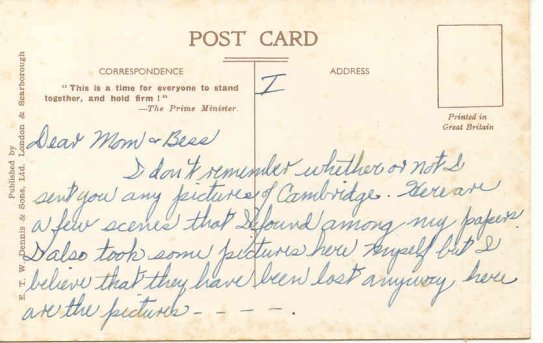 POST CARD
CORRESPONDENCE
ADDRESS
"This is a time for everyone to stand
together, and hold firm!"
—The Prime Minister.
I
Printed in
Great Britain
Published by
E. T. W. Dennis & Sons, Ltd. London & Scarborough
Dear Mom & Bess
I don't remember whether or not I
sent you any pictures of Cambridge. Here are
a few scenes that I found among my papers.
I also took some pictures here myself but I
believe that they have been lost anyway here
are the pictures - - - - .